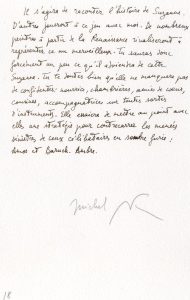 Il s'agira de raconter l'histoire de Suzanne.
D'autres joueront à ce jeu avec moi. De nombreux
peintres à partir de la Renaissance rivaliseront à
représenter ce nu merveilleux. Tu sauras donc
forcément un peu ce qu'il adviendra de cette
Suzanne. Tu te doutes bien qu'elle ne manquera pas
de confidentes: nourrice, chambrières, amies de cœur,
cousines, accompagnatrices sur toutes sortes
d'instruments. Elle essaiera de mettre au point avec
elles une stratégie pour contrecarrer les menées
sinistres de ceux célibataires en furie:
Amos et Baruch. Ambre.
Michel
18